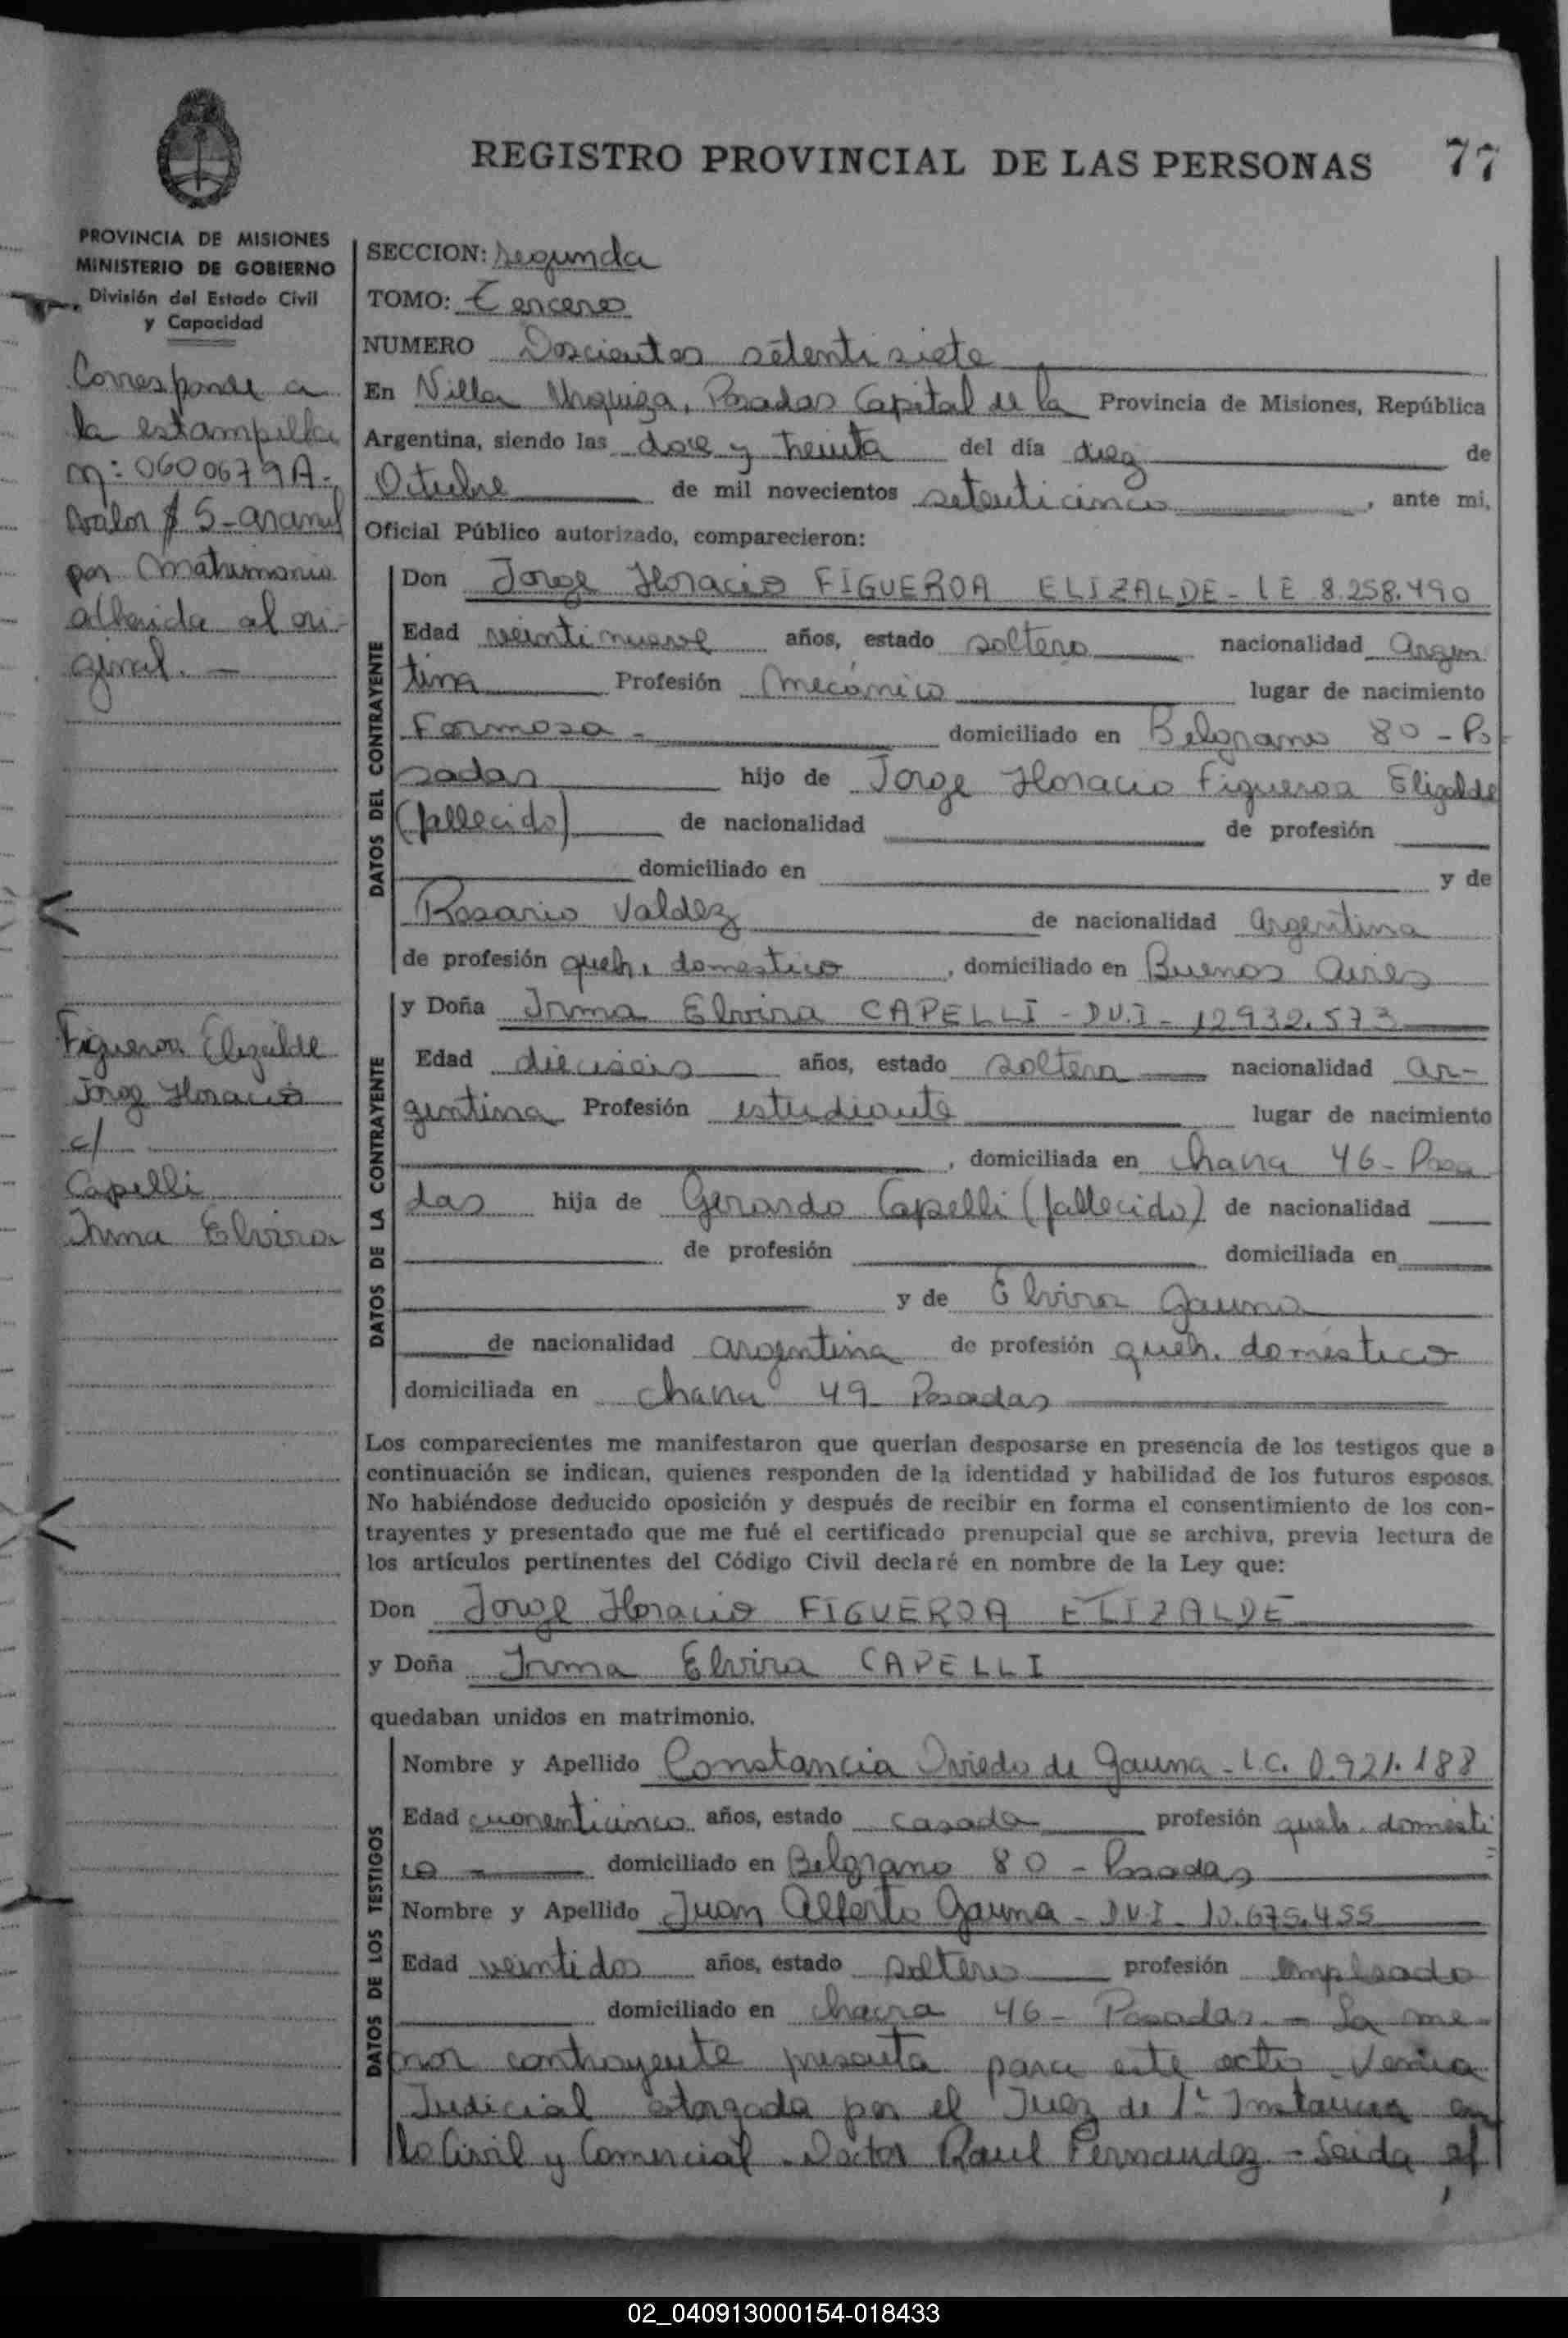 REGISTRO PROVINCIAL DE LAS PERSONAS 77
PROVINCIA DE MISIONES
MINISTERIO DE GOBIERNO
División del Estado Civil
y Capacidad
Corresponde a
la estampilla
nº: 0600679A-
valor $ 5- arancel
por matrimonio
adherida al ori-
ginal. —
Figueroa Elizalde
Jorge Horacio
c/
Capelli
Irma Elvira
SECCION: segunda
TOMO: Tercero
NUMERO Doscientos setenti siete
En Villa Urquiza, Posadas Capital de la Provincia de Misiones, República
Argentina, siendo las doce y treinta del día diez de
Octubre de mil novecientos setenticinco, ante mi,
Oficial Público autorizado, comparecieron:
DATOS DEL CONTRAYENTE
Don Jorge Horacio FIGUEROA ELIZALDE - LE 8.258.490
Edad veintinueve años, estado soltero nacionalidad Argen
tina Profesión Mecánico lugar de nacimiento
Formosa - domiciliado en Belgrano 80 - Po-
sadas hijo de Jorge Horacio Figueroa Elizalde
(fallecido) de nacionalidad de profesión
domiciliado en y de
Rosario Valdez de nacionalidad argentina
de profesión queh. domestico, domiciliado en Buenos Aires
DATOS DE LA CONTRAYENTE
y Doña Irma Elvira CAPELLI - D.N.I - 12932.573
Edad dieciseis años, estado soltera nacionalidad ar-
gentina Profesión estudiante lugar de nacimiento
, domiciliada en chacra 46 - Posa
das hija de Gerardo Capelli (fallecido) de nacionalidad
de profesión domiciliada en
y de Elvira Gauna
de nacionalidad argentina de profesión queh. doméstico
domiciliada en chacra 49 Posadas
Los comparecientes me manifestaron que querían desposarse en presencia de los testigos que a
continuación se indican, quienes responden de la identidad y habilidad de los futuros esposos.
No habiéndose deducido oposición y después de recibir en forma el consentimiento de los con-
trayentes y presentado que me fué el certificado prenupcial que se archiva, previa lectura de
los artículos pertinentes del Código Civil declaré en nombre de la Ley que:
Don Jorge Horacio FIGUEROA ELIZALDE
y Doña Irma Elvira CAPELLI
quedaban unidos en matrimonio.
DATOS DE LOS TESTIGOS
Nombre y Apellido Constancia Oviedo de Gauna - L.C. 0.921.188
Edad cuarenticinco años, estado casada profesión queh. domésti
co - domiciliado en Belgrano 80 - Posadas
Nombre y Apellido Juan Alberto Gauna - D.N.I - 10.675.455
Edad veintidos años, estado soltero profesión empleado
domiciliado en chacra 46 - Posadas. - La me-
nor contrayente presenta para este acto Venia
Judicial otorgada por el Juez de 1ª Instancia en
lo Civil y Comercial. Doctor Raul Fernandez - Leida el
02_040913000154-018433